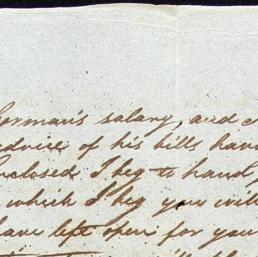 German's salary, and
advice of his bills hav
Enclosed I beg to hand
which I beg you will
have left open for you